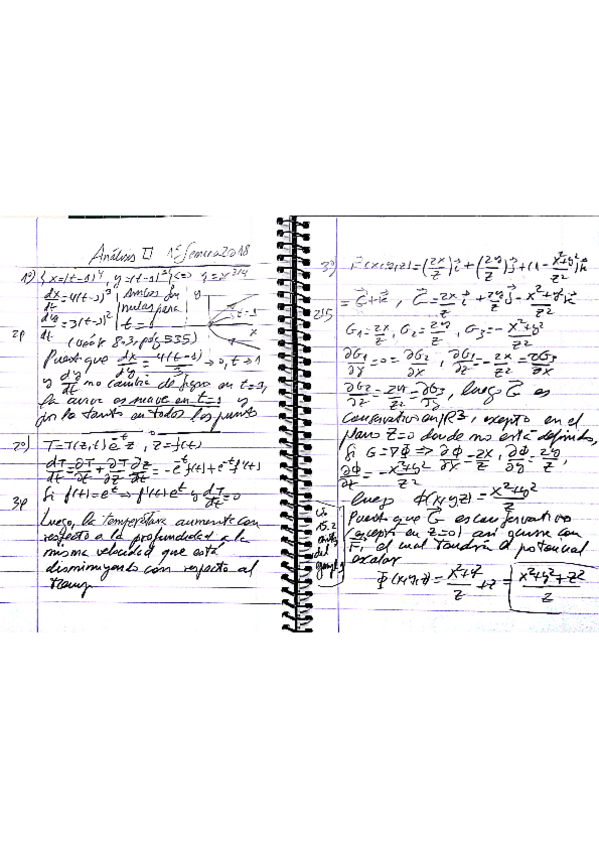 Análisis II 1ªSemana 2018
1º) { x=(t-1)⁴, y=(t-1)³ } <=> y=x^{3/4}
dx/dt = 4(t-1)³ | Ambas
dy/dt = 3(t-1)² | nulas para
t=
y
x
2p
(véase 8.3, pág 535)
Puesto que dx/dy = 4(t-1)/3 → 0, t→1
y dy/dt no cambia de signo en t=1,
la curva es suave en t=1 y
por lo tanto en todos los puntos
2º) T=T(z,t) e^{-t} z, z=f(t)
dT/dt = ∂T/∂t + ∂T/∂z dz/dt = -e^{-t}f(t)+e^{-t}f'(t)
Si f(t)=e^t ⇒ f'(t)=e^t y dT/dt=0
3p
Luego, la temperatura aumenta con
respecto a la profundidad a la
misma velocidad que está
disminuyendo con respecto al
3º) F(x,y,z)=(2x/z)i+(2y/z)j+(1-(x²+y²)/z²)k
= G+k, G=2x/z i+2y/z j-(x²+y²)/z² k
G₁=2x/z, G₂=2y/z, G₃=-(x²+y²)/z²
∂G₁/∂y=0=∂G₂/∂x, ∂G₁/∂z=-2x/z²=∂G₃/∂x
∂G₂/∂z=-2y/z²=∂G₃/∂y, luego G es
conservativo en R3, excepto en el
plano z=0 donde no está definido,
Si G=∇Φ ⇒ ∂Φ/∂x=2x/z, ∂Φ/∂y=2y/z,
∂Φ/∂z=-(x²+y²)/z²
luego Φ(x,y,z)=(x²+y²)/z
Puesto que G es conservativo
(excepto en z=0) así ocurre con
F, el cual tendría el potencial
escalar
Φ(x,y,z)=(x²+y²)/z+z=(x²+y²+z²)/z
15.2
del